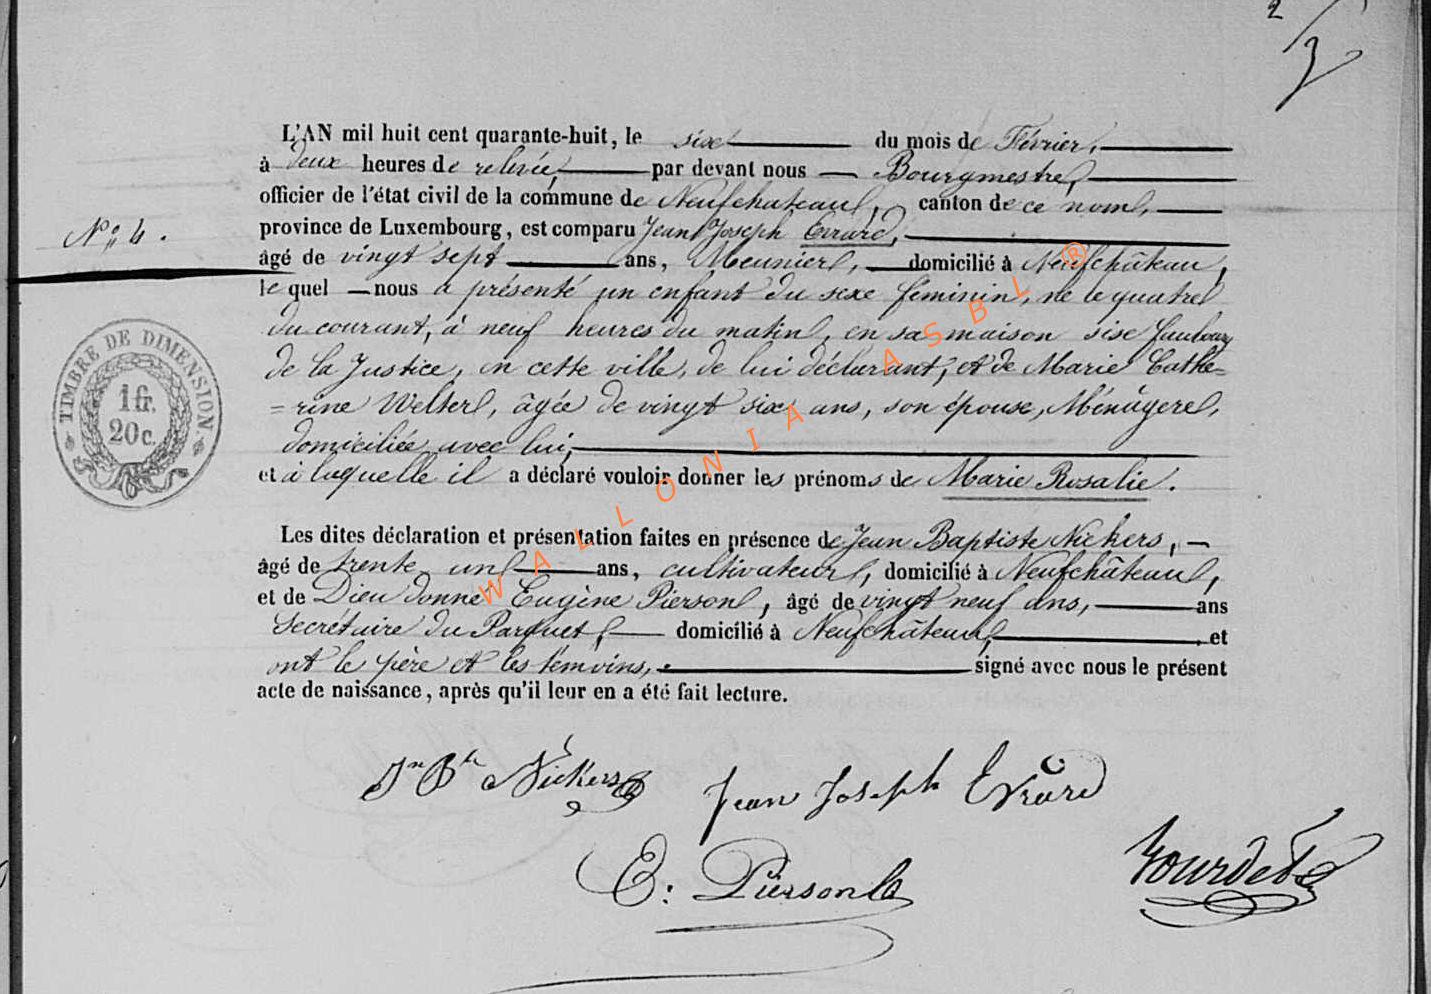 2
3
L'AN mil huit cent quarante-huit, le six du mois de Février,
à deux heures de relevée, par devant nous Bourgmestre,
officier de l'état civil de la commune de Neufchateau, canton de ce nom,
N° 4.
province de Luxembourg, est comparu Jean Joseph Evrard,
âgé de vingt sept ans, Meunier, domicilié à Neufchâteau,
le quel nous a présenté un enfant du sexe féminin, né le quatre
du courant, à neuf heures du matin, en sa maison sise faubourg
de la Justice, en cette ville, de lui déclarant, et de Marie Cathe=
=rine Welter, âgée de vingt six ans, son épouse, Ménagere,
domiciliée avec lui,
et à laquelle il a déclaré vouloir donner les prénoms de Marie Rosalie.
TIMBRE DE DIMENSION.
1 fr.
20 c.
Les dites déclaration et présentation faites en présence de Jean Baptiste Nickers,
âgé de trente un ans, cultivateur, domicilié à Neufchâteau,
et de Dieu donné Eugène Pierson, âgé de vingt neuf ans, ans
Secrétaire du Parquet, domicilié à Neufchâteau, et
ont le père et les témoins, signé avec nous le présent
acte de naissance, après qu'il leur en a été fait lecture.
Jn Bte Nickers
Jean Joseph Evrard
E: Pierson
WALLONIA ASBL ®